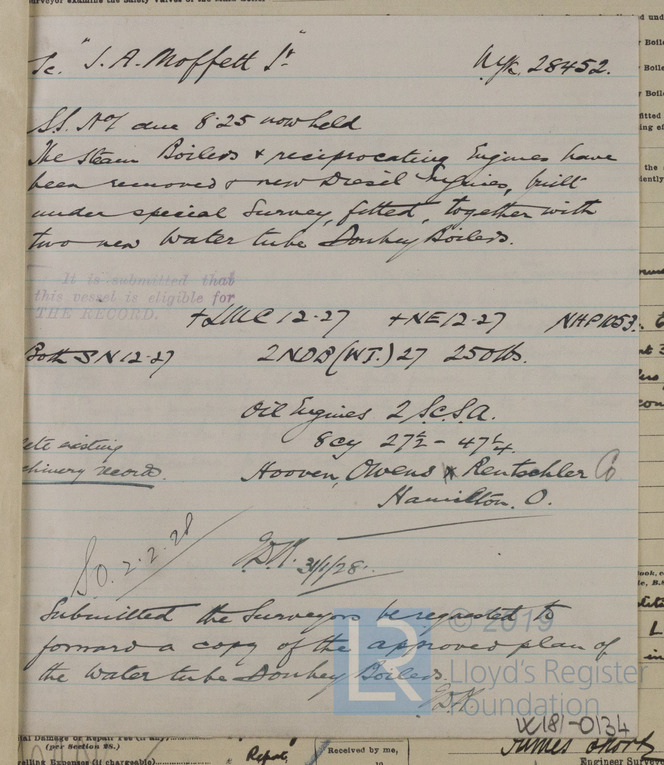 Sc. "J. A. Moffett Jr" Nyk 28452.
S.S. No 1 due 8.25 now held
The Steam Boilers & reciprocating Engines have
been removed & new Diesel Engines, built
under special Survey, fitted, together with
two new Water tube Donkey Boilers.
It is submitted that
this vessel is eligible for
THE RECORD.
+LMC 12-27 +NE 12-27 NHP 1053.
Both SN 12-27 2NDB (WT.) 27 250 lbs.
Oil Engines 2 S.C.S.A.
8cy 27½ - 47¼
ete existing
chinery records.
Hooven, Owens Rentschler Co
Hamilton. O.
2.2.28
31/1/28.
Submitted the Surveyors be requested to
forward a copy of the approved plan of
the Water tube Donkey Boilers.
© 2019
LR
Lloyd's Register
Foundation
W181-0134
(per Section 28.)
elling Expenses (if chargeable)
Repat.
Received by me,
James
Engineer Survey